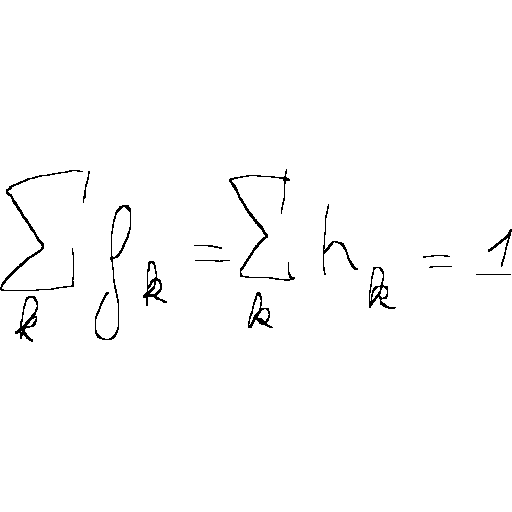 \sum_{k} f_{k} = \sum_{k} h_{k} = 1